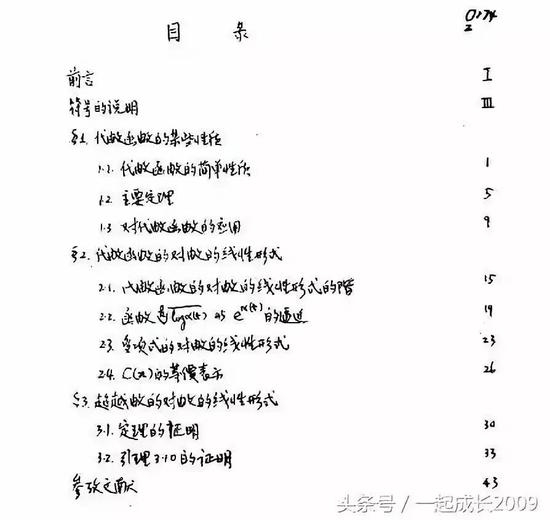 0174
2
目 录
前言 I
符号的说明 III
§1. 代数函数的某些性质
1.1. 代数函数的简单性质 1
1.2 主要定理 5
1.3 对代数函数的应用 9
§2. 代数函数的对数的线性形式
2.1. 代数函数的对数的线性形式的阶 15
2.2. 函数 log α(z) 与 e^{α(z)} 的逼近 19
2.3. 多项式的对数的线性形式 23
2.4. C(z) 的等价表示 26
§3. 超越数的对数的线性形式
3.1. 定理的证明 30
3.2. 引理3.10的证明 33
参考文献 43
头条号 / 一起成长2009